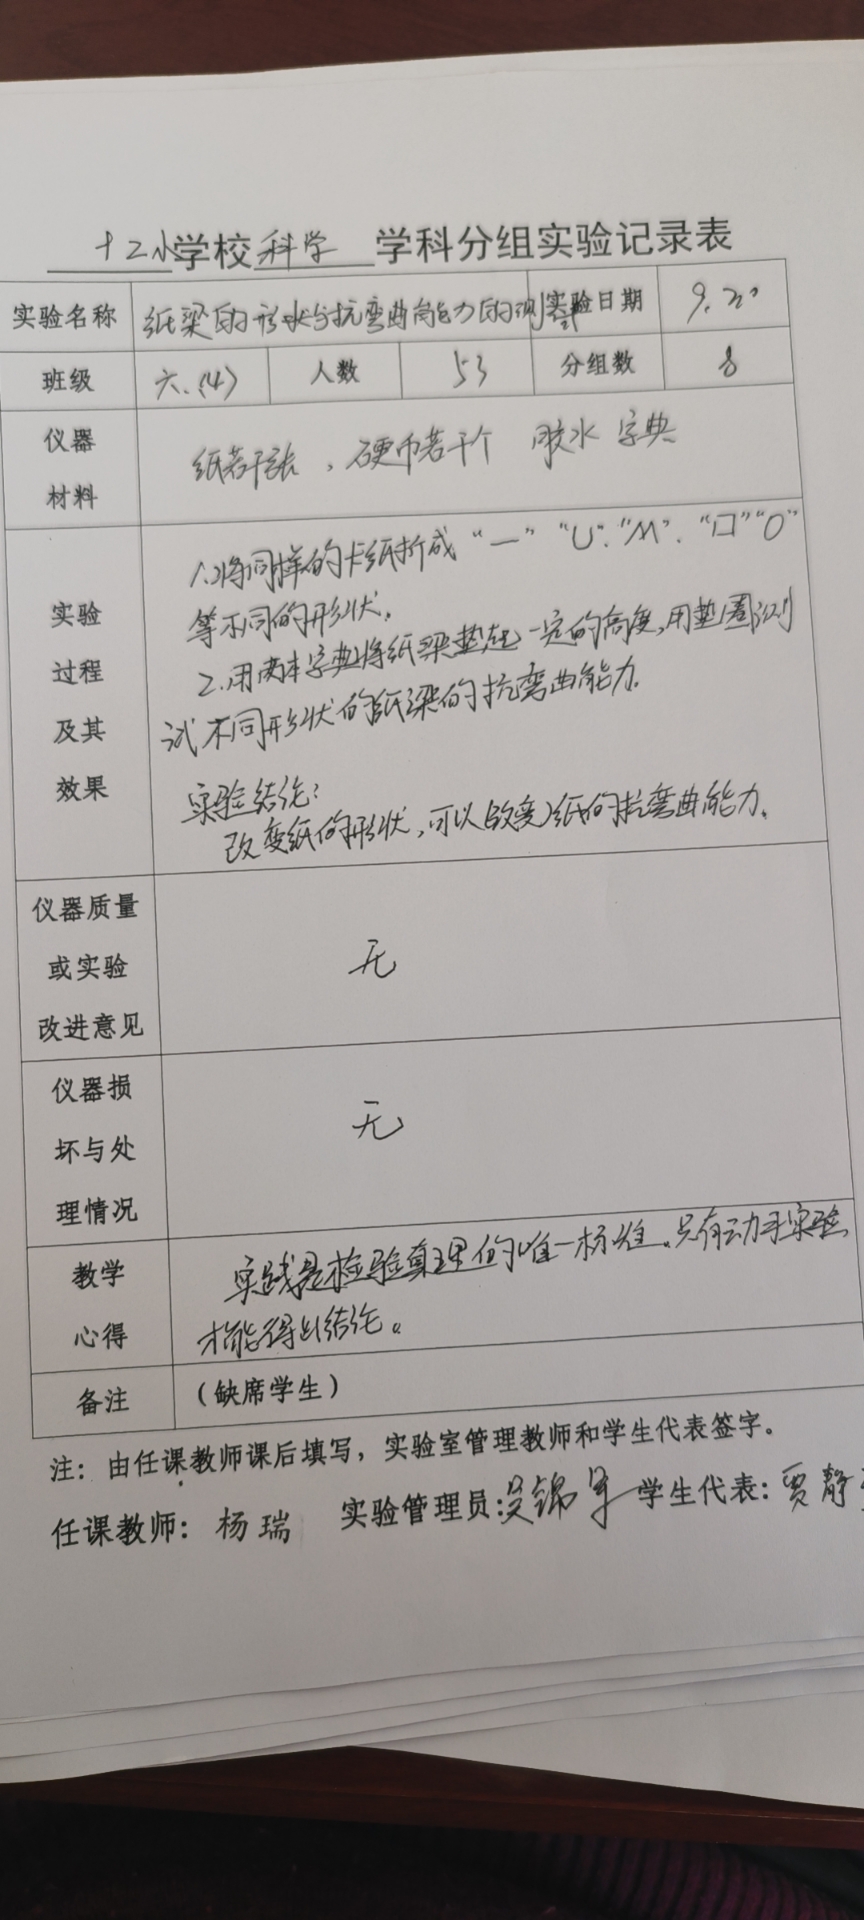 十二小学校科学 学科分组实验记录表
实验名称 纸梁的形状与抗弯曲能力的测试 实验日期 9.20
班级 六.(4) 人数 53 分组数 8
仪器
材料
纸若干张，硬币若干个 胶水 字典
实验
过程
及其
效果
1.将同样的卡纸折成“一”“U”.“M”.“口”“O”
等不同的形状.
2.用两本字典将纸梁垫起一定的高度,用垫圈测
试不同形状的纸梁的抗弯曲能力.
实验结论:
改变纸的形状,可以改变纸的抗弯曲能力.
仪器质量
或实验
改进意见
无
仪器损
坏与处
理情况
无
教学
心得
实践是检验真理的唯一标准.只有动手实验
才能得出结论。
备注 （缺席学生）
注：由任课教师课后填写，实验室管理教师和学生代表签字。
任课教师：杨瑞 实验管理员:吴锦 学生代表:贾静